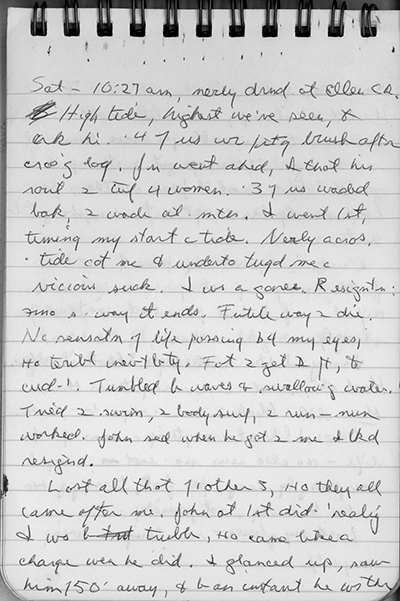 Sat - 10:27 am, nerly drnd at Ellen Ck.
High tide, highest we've seen, &
crk hi. 4 7 us wr jstg brush after
cros'g log. Jn went ahed, & that his
rout 2 tuf 4 women. 3 7 us waded
bak, 2 wade at mth. I went 1st,
timing my start c tide. Nerly acros,
tide cot me & underto tugd me c
vicious suck. I ws a goner. Resignatn:
so s way it ends. Futile way 2 die.
No sensatn 7 life passing b4 my eyes,
no teribl inevitblty. Fot 2 get 2 ft,
cud-'. Tumbled b waves & swallowing water.
Tried 2 swim, 2 body surf, 2 run - nun
worked. John sed when he got 2 me I lkd
resignd.
Lost all that 7 other 3, tho they all
came after me. John at 1st did-' realiz
I ws trubl, tho came like a
charge wen he did. I glanced up, saw
him 150' away, & b an instant he ws ther